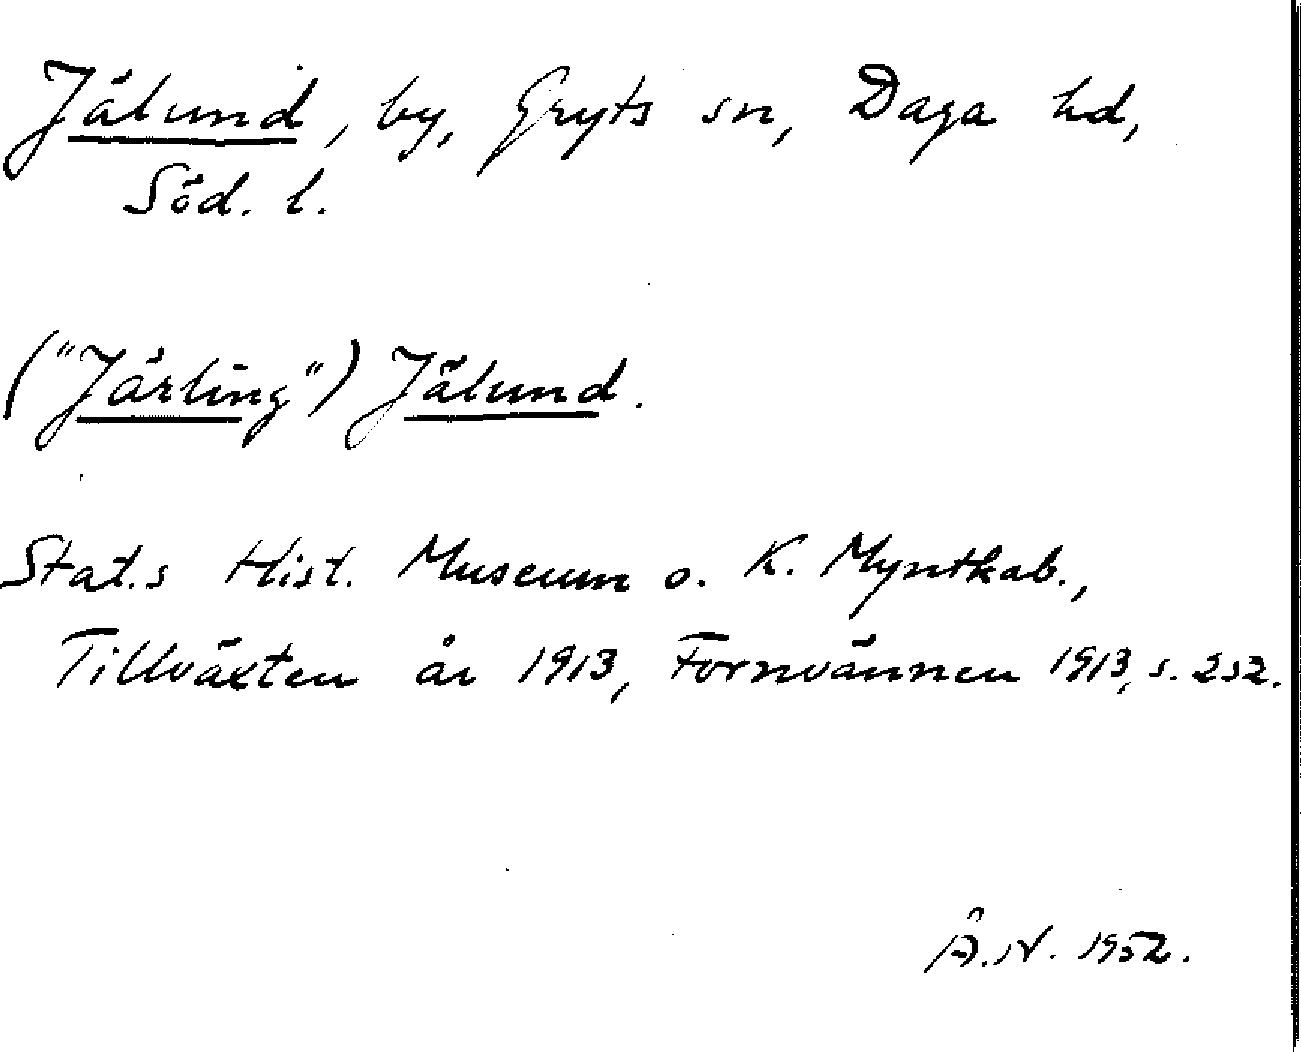 Jälund, by, Gryts sn, Daga hd,
Söd. l.
("Järling") Jälund.
Stat.s Hist. Museum o. K. Myntkab.,
Tillväxten år 1913, Fornvännen 1913, s. 252.
Å.N. 1952.